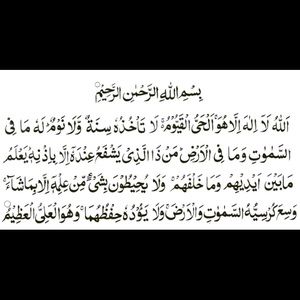 بِسْمِ اللهِ الرَّحْمٰنِ الرَّحِيْمِ
اَللهُ لَآ اِلٰهَ اِلَّا هُوَ ۚ اَلْحَیُّ الْقَيُّوْمُ ۚ لَا تَاْخُذُهٗ سِنَةٌ وَّلَا نَوْمٌ ؕ لَهٗ مَا فِی
السَّمٰوٰتِ وَمَا فِی الْاَرْضِ ؕ مَنْ ذَا الَّذِیْ يَشْفَعُ عِنْدَهٗٓ اِلَّا بِاِذْنِهٖ ؕ يَعْلَمُ
مَا بَيْنَ اَيْدِيْهِمْ وَمَا خَلْفَهُمْ ۚ وَلَا يُحِيْطُوْنَ بِشَیْءٍ مِّنْ عِلْمِهٖٓ اِلَّا بِمَا شَآءَ ۚ
وَسِعَ كُرْسِيُّهُ السَّمٰوٰتِ وَالْاَرْضَ ۚ وَلَا يَـُٔوْدُهٗ حِفْظُهُمَا ۚ وَهُوَ الْعَلِیُّ الْعَظِيْمُ